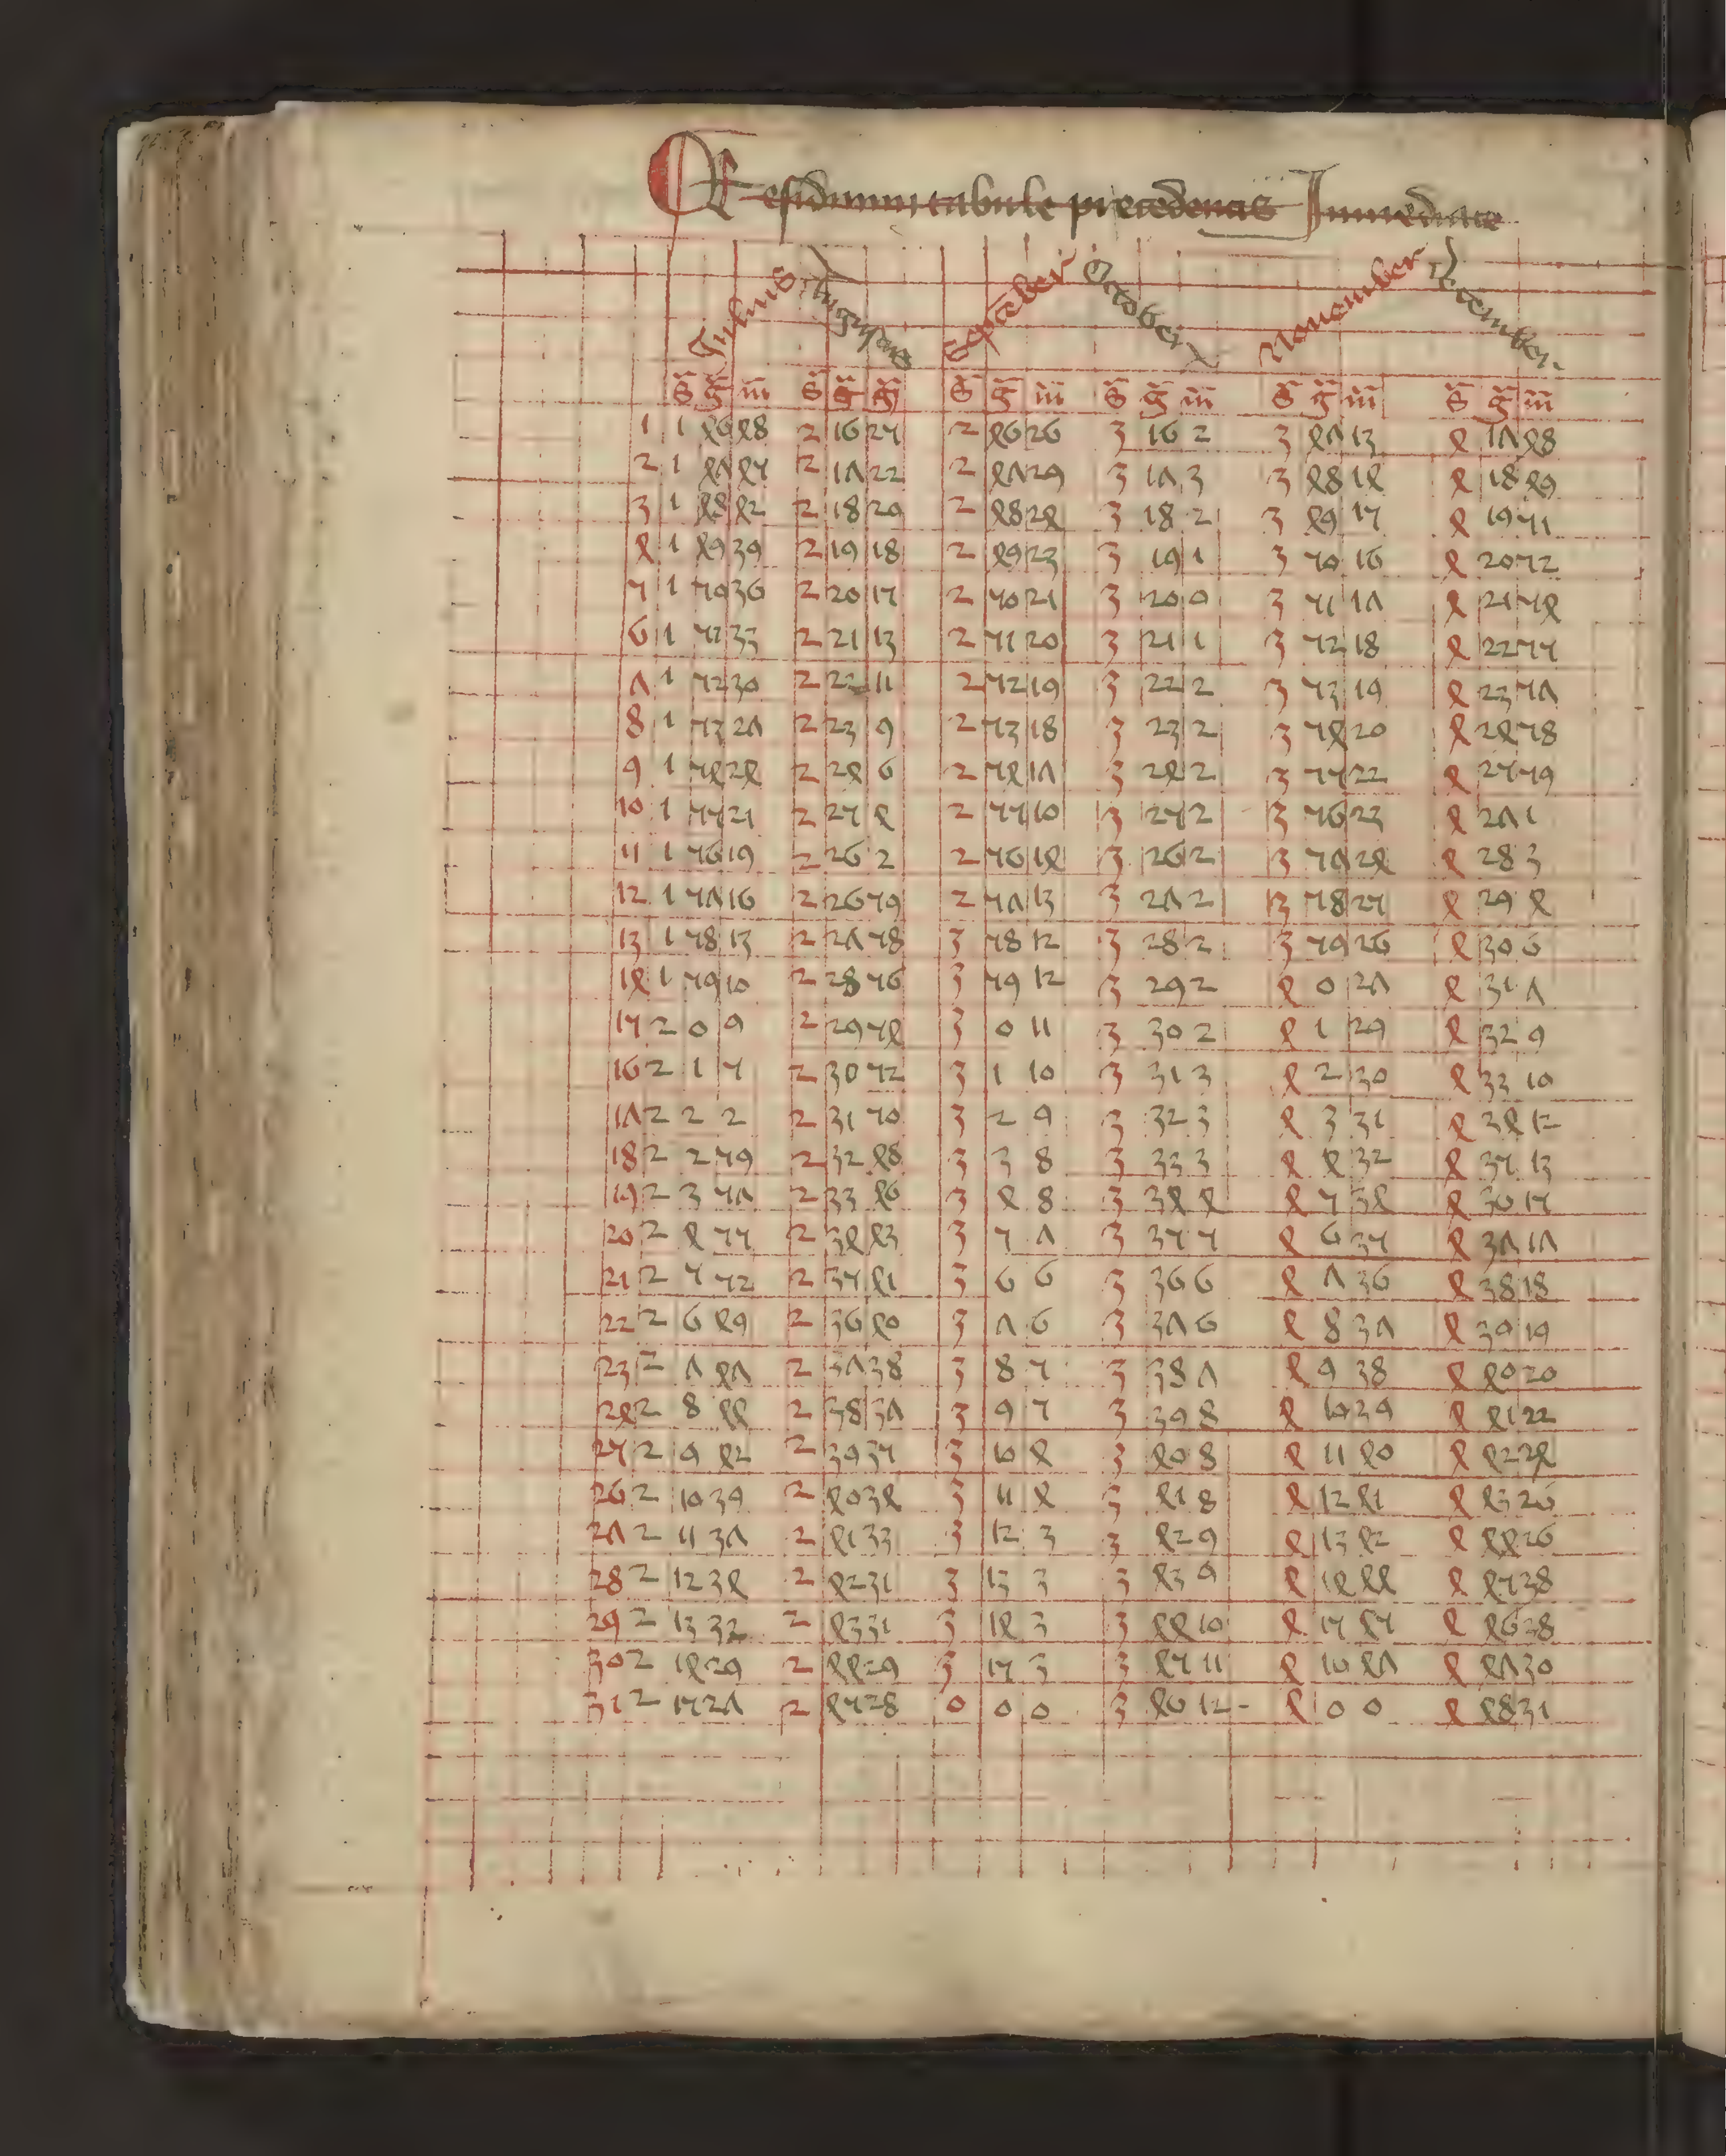 Residuum tabule precedentis Immediate
Julius Augustus Septēber October Nouember Decēmber
s̄ ḡ m̄ s̄ ḡ m̄ s̄ ḡ m̄ s̄ ḡ m̄ s̄ ḡ m̄ s̄ ḡ m̄
1 1 46 48 2 16 25 2 46 26 3 16 2 3 47 13 4 17 48
2 1 47 45 2 17 22 2 47 29 3 17 3 3 48 14 4 18 49
3 1 48 42 2 18 20 2 48 24 3 18 2 3 49 15 4 19 51
4 1 49 39 2 19 18 2 49 23 3 19 1 3 50 16 4 20 52
5 1 50 36 2 20 15 2 50 21 3 20 0 3 51 17 4 21 54
6 1 51 33 2 21 13 2 51 20 3 21 1 3 52 18 4 22 55
7 1 52 30 2 22 11 2 52 19 3 22 2 3 53 19 4 23 57
8 1 53 27 2 23 9 2 53 18 3 23 2 3 54 20 4 24 58
9 1 54 24 2 24 6 2 54 17 3 24 2 3 55 22 4 25 59
10 1 55 21 2 25 4 2 55 10 3 25 2 3 56 23 4 27 1
11 1 56 19 2 26 2 2 56 14 3 26 2 3 57 24 4 28 3
12 1 57 16 2 26 59 2 57 13 3 27 2 3 58 25 4 29 4
13 1 58 13 2 27 58 3 58 12 3 28 2 3 59 26 4 30 6
14 1 59 10 2 28 56 3 59 12 3 29 2 4 0 27 4 31 7
15 2 0 9 2 29 54 3 0 11 3 30 2 4 1 29 4 32 9
16 2 1 5 2 30 52 3 1 10 3 31 3 4 2 30 4 33 10
17 2 2 2 2 31 50 3 2 9 3 32 3 4 3 31 4 34 12
18 2 2 59 2 32 48 3 3 8 3 33 3 4 4 32 4 35 13
19 2 3 57 2 33 46 3 4 8 3 34 4 4 5 34 4 36 15
20 2 4 55 2 34 43 3 5 7 3 35 5 4 6 35 4 37 17
21 2 5 52 2 35 41 3 6 6 3 36 6 4 7 36 4 38 18
22 2 6 49 2 36 40 3 7 6 3 37 6 4 8 37 4 39 19
23 2 7 47 2 37 38 3 8 5 3 38 7 4 9 38 4 40 20
24 2 8 44 2 38 37 3 9 5 3 39 8 4 10 39 4 41 22
25 2 9 42 2 39 35 3 10 4 3 40 8 4 11 40 4 42 24
26 2 10 39 2 40 34 3 11 4 3 41 8 4 12 41 4 43 26
27 2 11 37 2 41 33 3 12 3 3 42 9 4 13 42 4 44 26
28 2 12 34 2 42 31 3 13 3 3 43 9 4 14 44 4 45 38
29 2 13 32 2 43 31 3 14 3 3 44 10 4 15 45 4 46 28
30 2 14 29 2 44 29 3 15 3 3 45 11 4 16 47 4 47 30
31 2 15 27 2 45 28 0 0 0 3 46 12 4 0 0 4 48 31